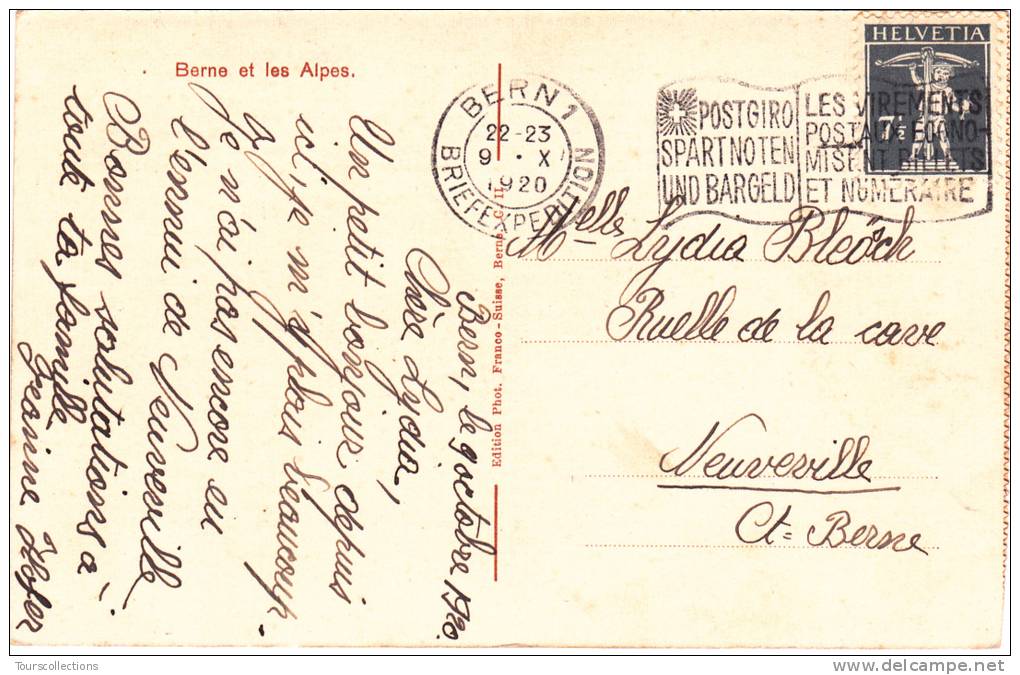 Berne et les Alpes.
Bern, le 9 octobre 1920.
Chère Lydia,
Un petit bonjour depuis
ici, je m'y plais beaucoup.
Je n'ai pas encore eu
l'ennui de Neuveville
Bonnes salutations à
toute ta famille
Jeanne Hofer
Edition Phot. Franco-Suisse, Berne. C. II.
BERN 1
22-23
9 • X
1920
BRIEFEXPEDITION
POSTGIRO
SPART NOTEN
UND BARGELD
LES VIREMENTS
POSTAUX ECONO-
MISENT BILLETS
ET NUMÉRAIRE
HELVETIA
7½
Melle Lydia Bleösch
Ruelle de la cave
Neuveville
Ct= Berne
Tourscollections
delcampe.net